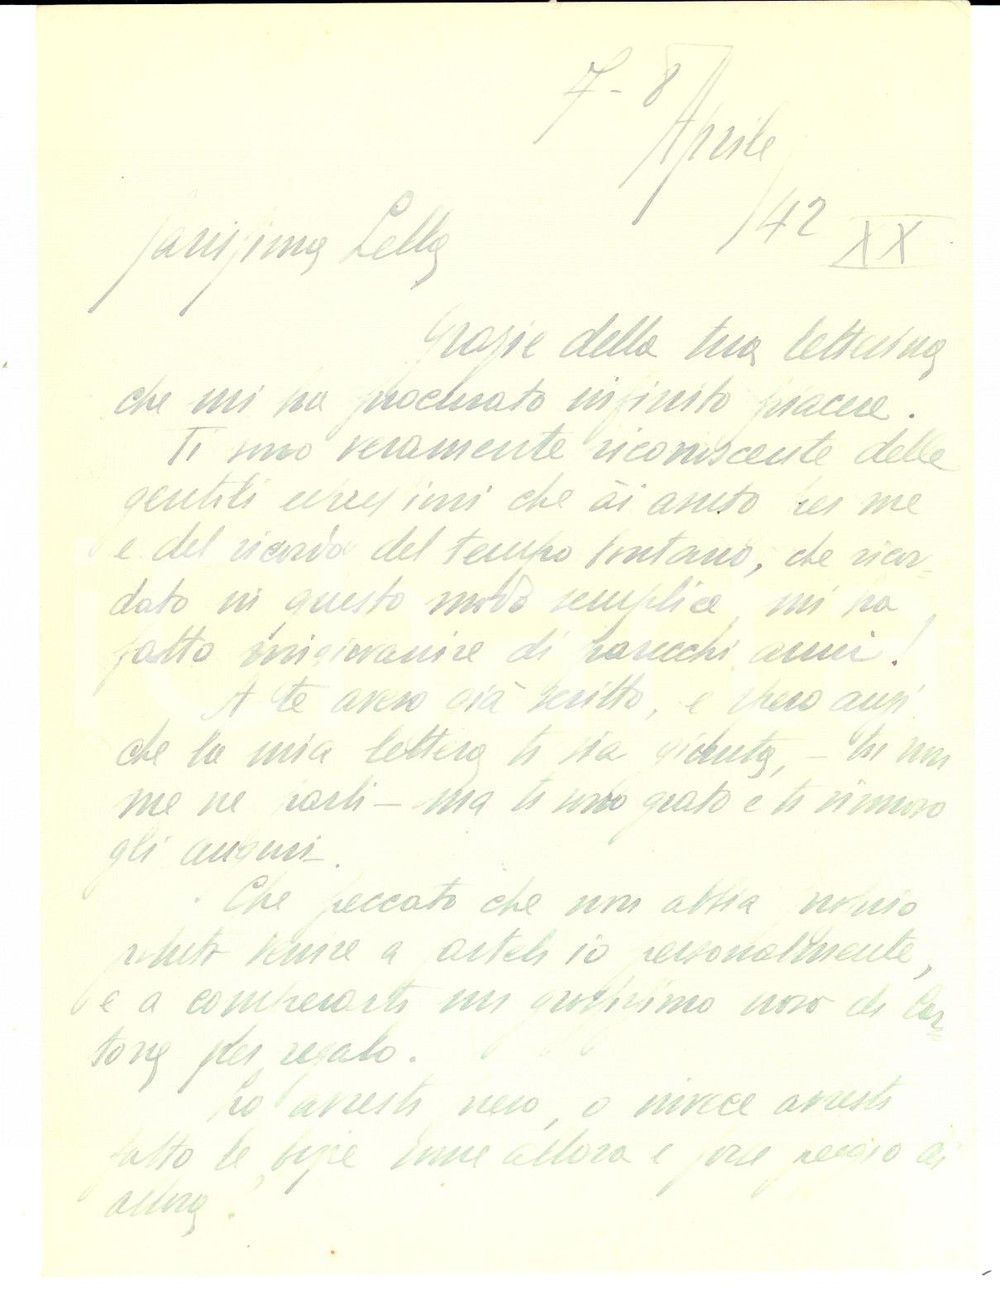 7-8
Aprile
/42
XX
Carissima Lella
Grazie della tua letterina
che mi ha procurato infinito piacere.
Ti sono veramente riconoscente delle
gentili espressioni che ài avuto per me
e del ricordo del tempo lontano, che ricor-
dato in questo modo semplice mi ha
fatto ringiovanire di parecchi anni!
A te avevo già scritto, e spero anzi
che la mia lettera ti sia giunta, - tu non
me ne parli - ma ti sono grato e ti rinnovo
gli auguri -.
Che peccato che non abbia proprio
potuto venire a io personalmente,
e a comperarti un grossissimo uovo di Car-
tong per regalo.
Lo avresti vero, o invece avresti
fatto le bizze come allora e forse peggio di
allora?